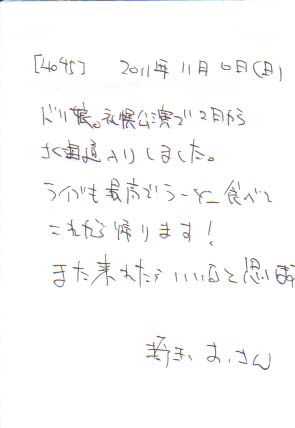 [4045] 2011年 11月 6日(日)
ドリ娘。札幌公演で2日から
北海道入りしました。
ライブも最高でラーメン食べて
これから帰ります!
また来れたらいいなと思います
埼玉 さん